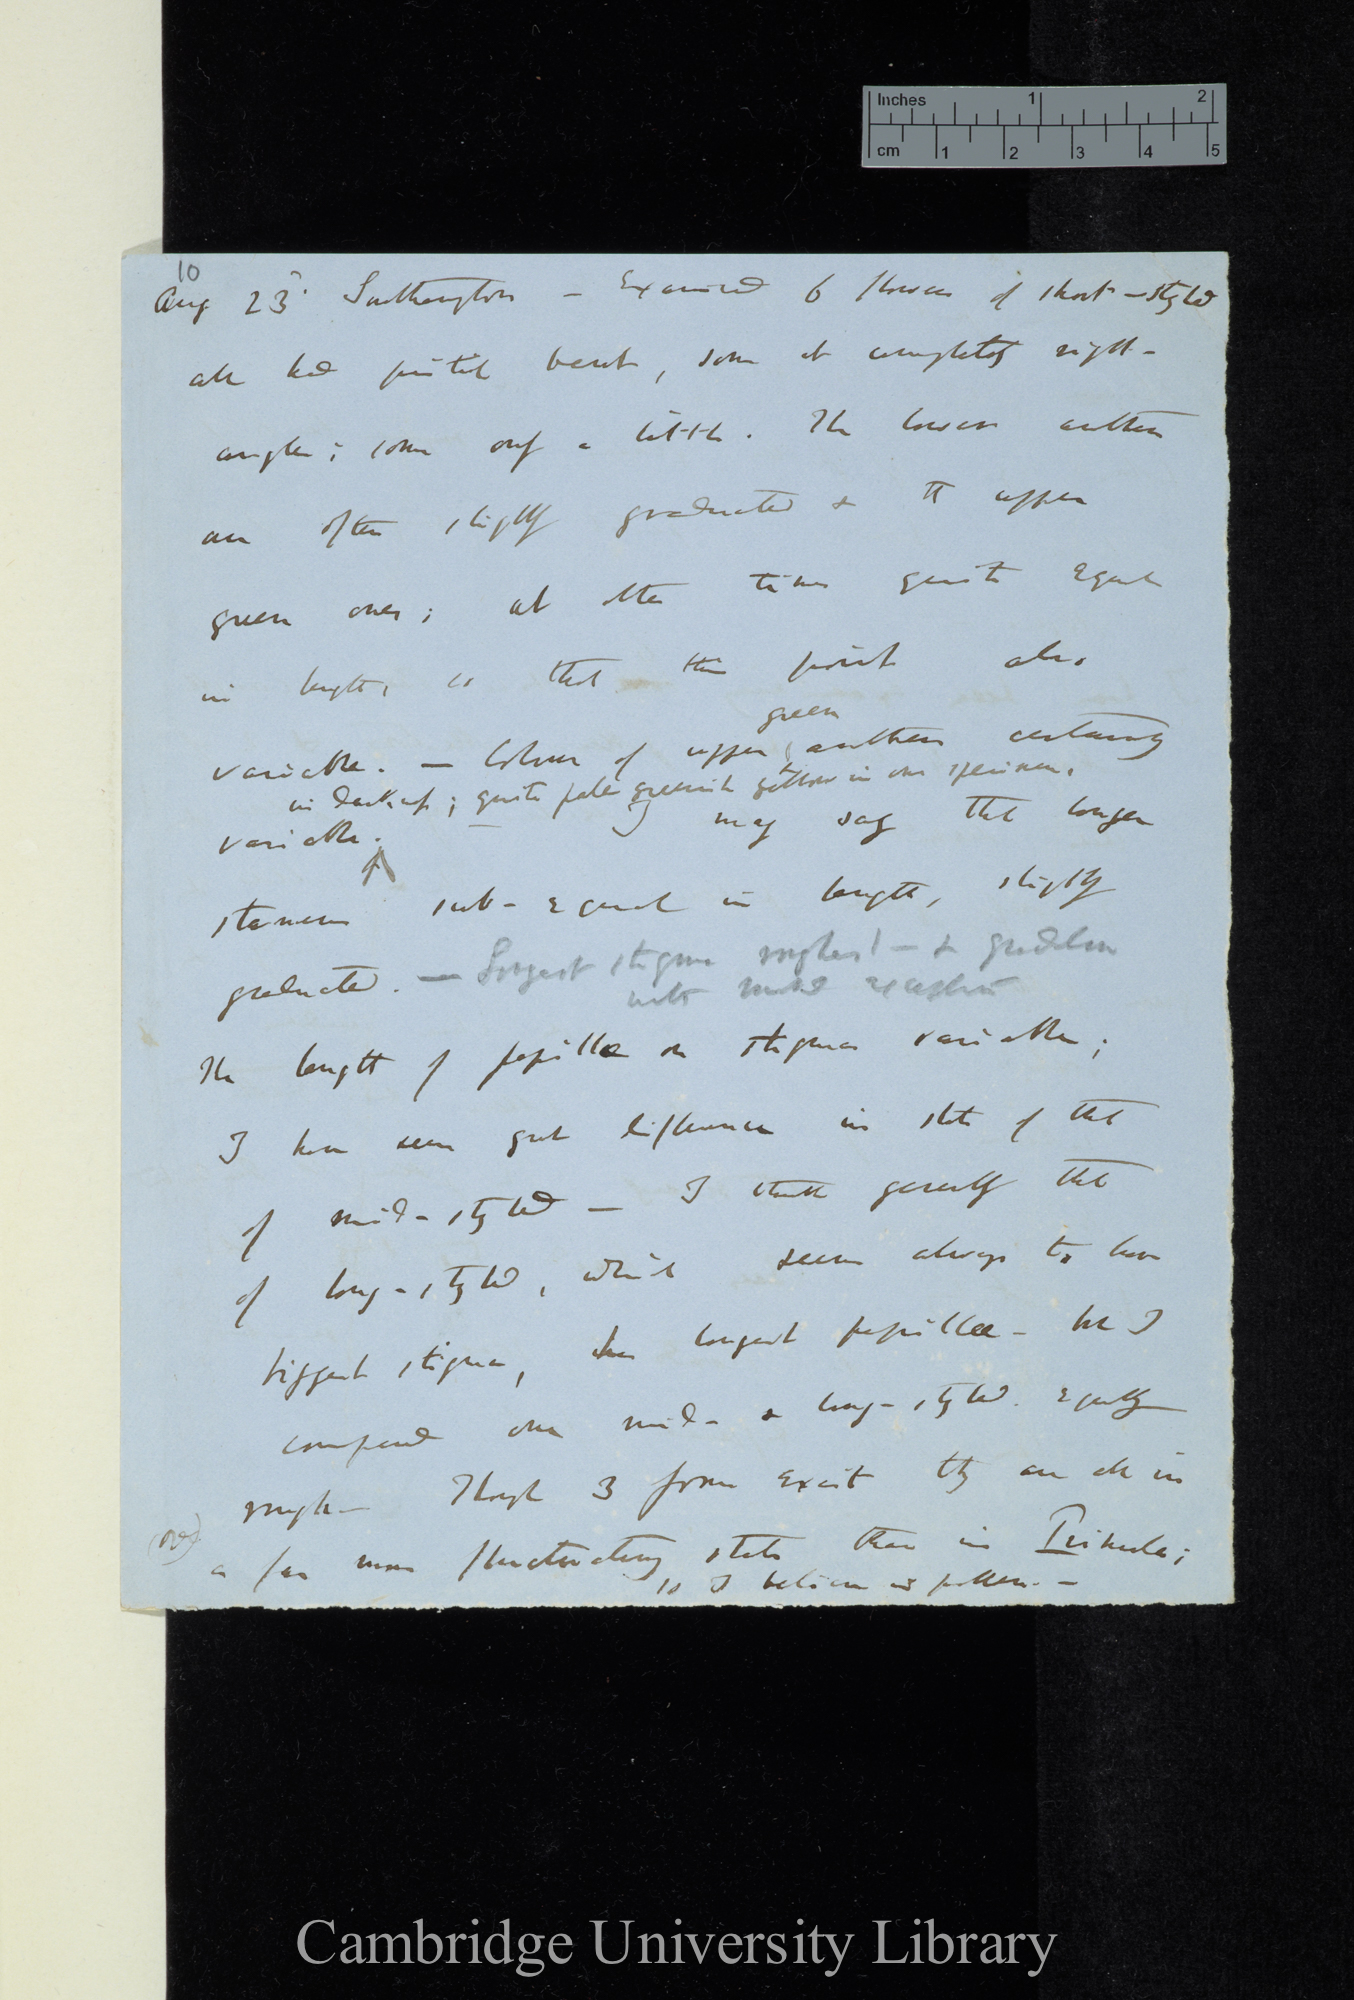 Inches 1 2
cm 1 2 3 4 5
10
Aug 23d Southampton — Examined 6 flowers of short-styled
all had pistil bent, some at completely right-
angles; some only a little. The lower anthers
are often slightly graduated & the upper
green ones; at other times quite equal
in length, so that this point also
green
variable. — Colour of upper anthers certainly
in darkness; quite pale greenish yellow in one specimen.
variable. — I may say that longer
stamens sub-equal in length, slightly
graduated. — Longest stigma roughest — & gradation
with marked exception
The length of papillae on stigmas variable;
I have seen great difference in state of that
of mid-styled — I think generally that
of long-styled, which seems always to have
biggest stigma, has longest papillae — but I
compared one mid- & long-styled equally
rough — Though 3 forms exist they are all in
(over)
a far more fluctuating state than in Primula;
so I believe is pollen. —
Cambridge University Library